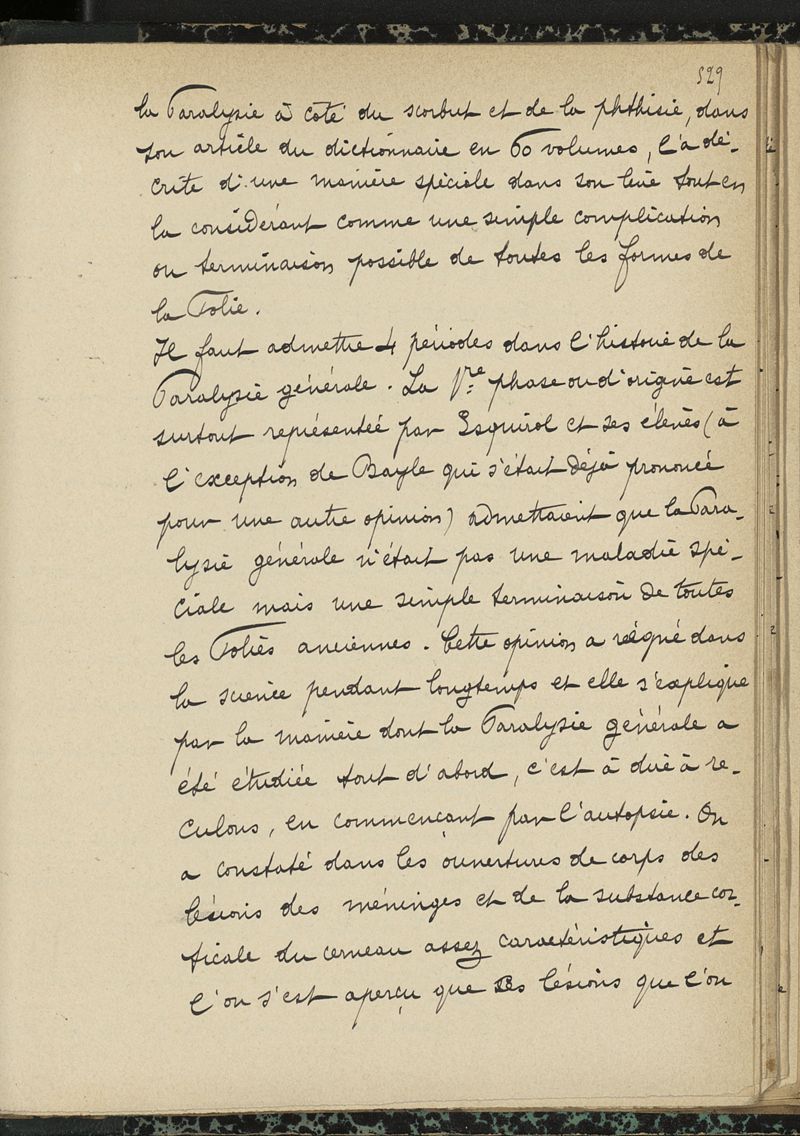 529
la Paralysie à côté du scorbut et de la phthisie, dans
son article du dictionnaire en 60 volumes, l'a dé-
crite d'une manière spéciale dans son livre tout en
la considérant comme une simple complication
ou terminaison possible de toutes les formes de
la Folie.
Il faut admettre 4 périodes dans l'histoire de la
Paralysie générale. La 1re phase ou d'origine est
surtout représentée par Esquirol et ses élèves (à
l'exception de Bayle qui s'était déjà prononcé
pour une autre opinion) admettaient que la Para-
lysie générale n'était pas une maladie spé-
ciale mais une simple terminaison de toutes
les Folies anciennes. Cette opinion a régné dans
la science pendant longtemps et elle s'explique
par la manière dont la Paralysie générale a
été étudiée tout d'abord, c'est à dire à re-
culons, en commençant par l'autopsie. On
a constaté dans les ouvertures de corps des
lésions des méninges et de la substance cor-
ticale du cerveau assez caractéristiques et
l'on s'est aperçu que les lésions que l'on